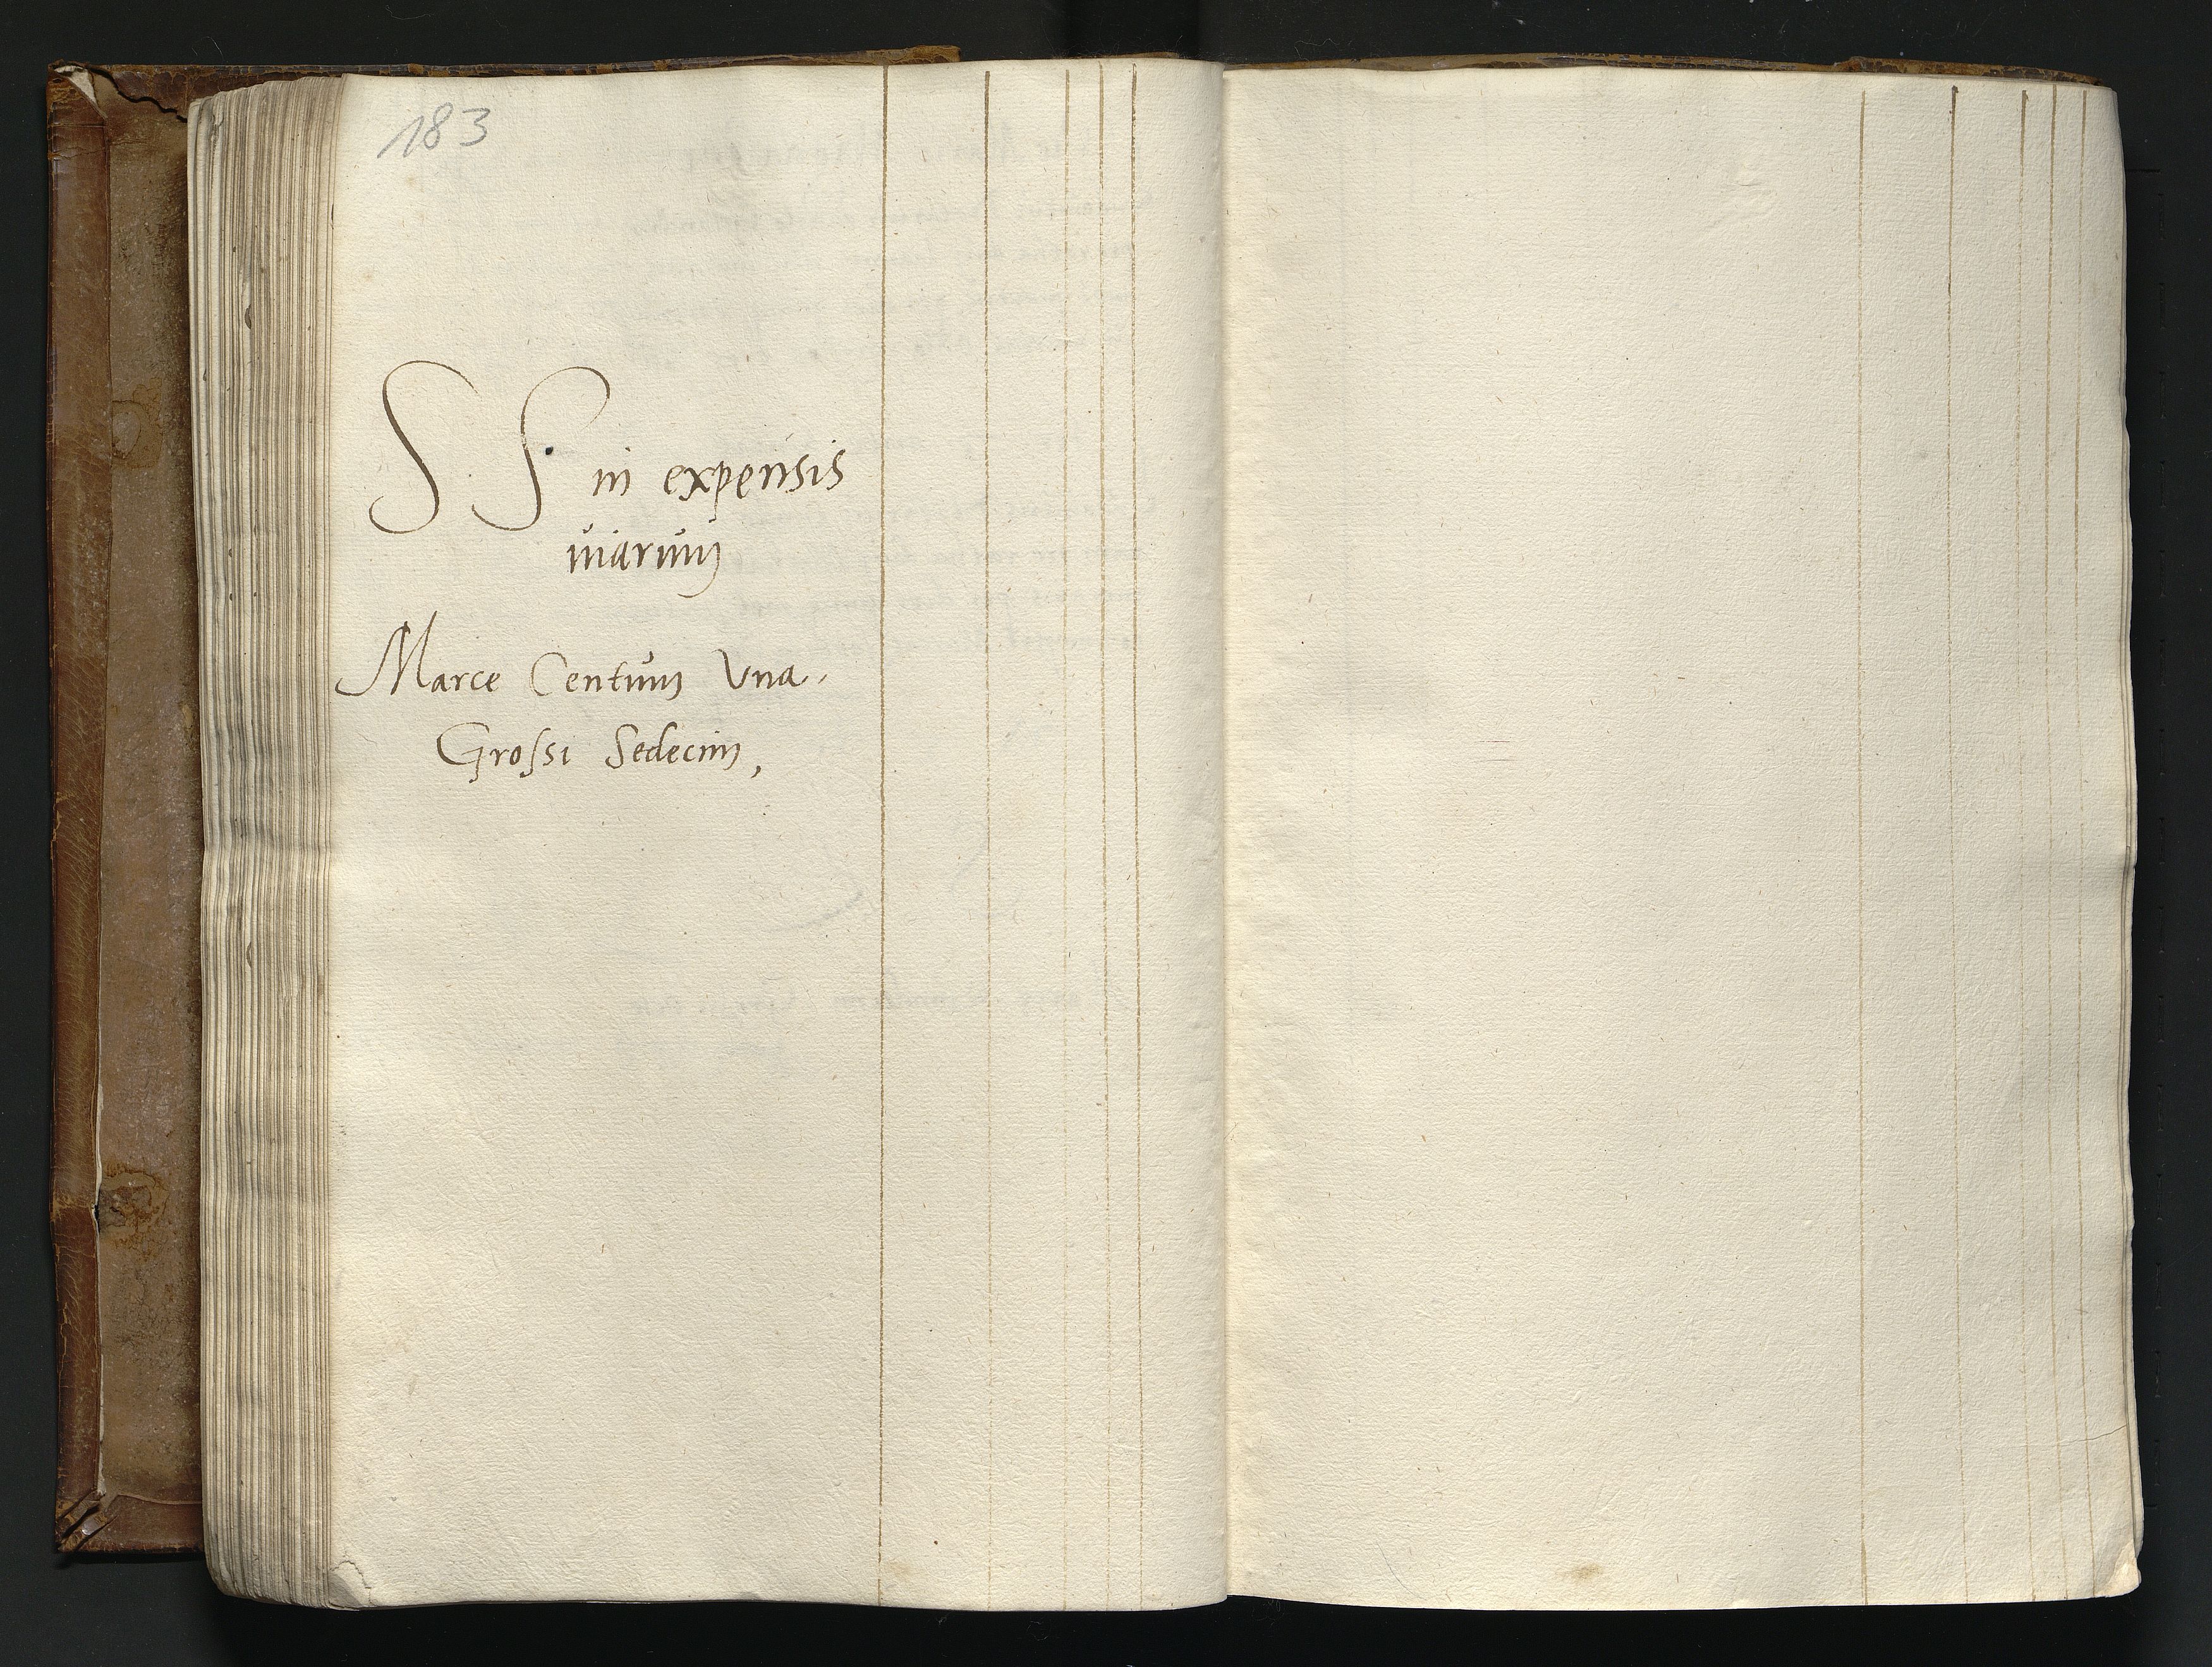 183
S S in expensis
viarum
Marce Centum Vna.
Grossi Sedecim,